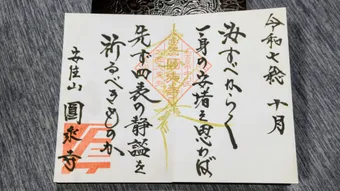 令和七年 十月
汝すべからく
一身の安堵を思わば
先ず四表の静謐を
祈るべきものか
安住山 圓永寺